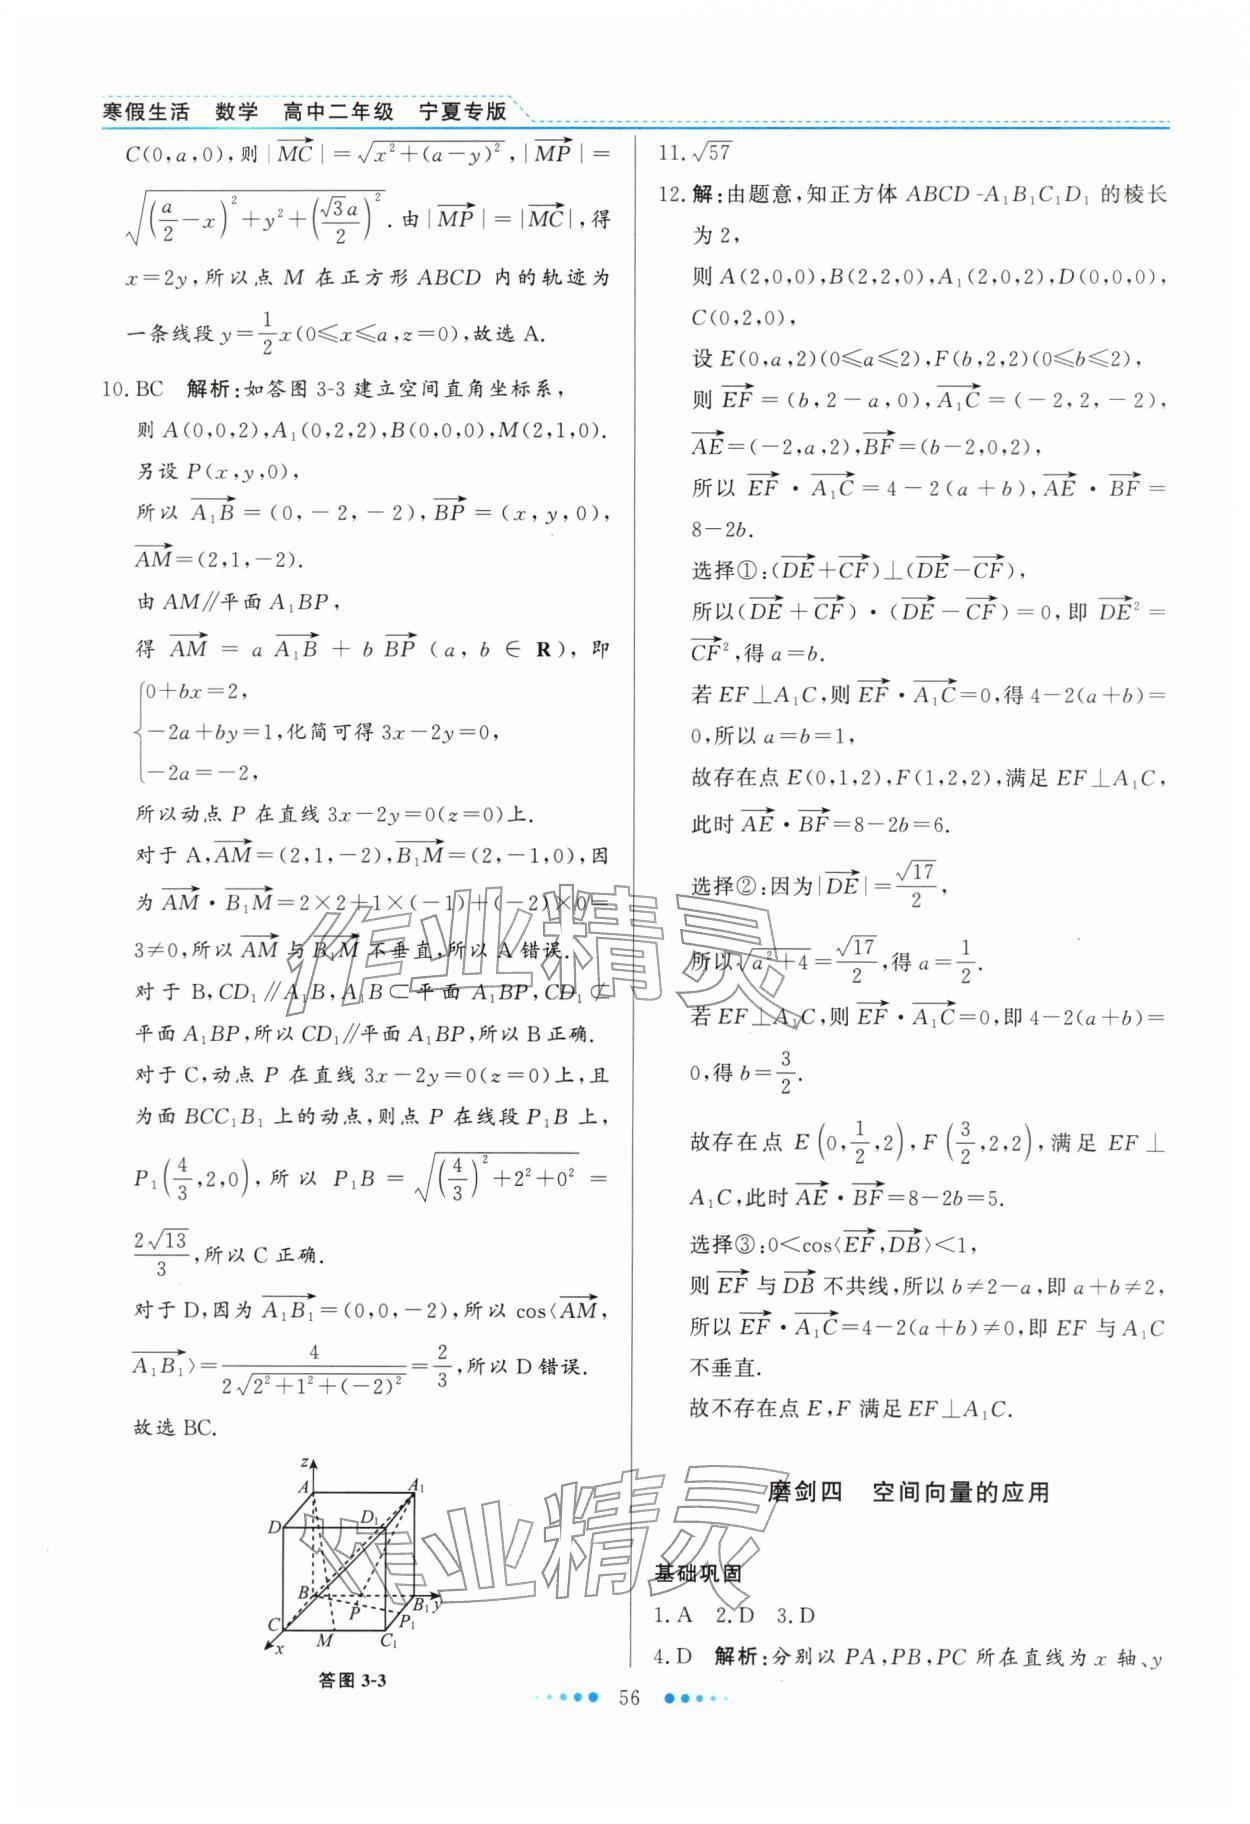 寒假生活 数学 高中二年级 宁夏专版
C(0,a,0),则|MC→|=√(x²+(a-y)²),|MP→|=
√((a/2-x)²+y²+(√3a/2)²).由|MP→|=|MC→|,得
x=2y,所以点 M 在正方形 ABCD 内的轨迹为
一条线段 y=1/2x(0≤x≤a,z=0),故选 A.
10. BC 解析:如答图 3-3 建立空间直角坐标系,
则 A(0,0,2),A₁(0,2,2),B(0,0,0),M(2,1,0).
另设 P(x,y,0),
所以 A₁B→=(0,-2,-2),BP→=(x,y,0),
AM→=(2,1,-2).
由 AM∥平面 A₁BP,
得 AM→ = a A₁B→ + b BP→ (a, b ∈ R), 即
{0+bx=2,
-2a+by=1,化简可得 3x-2y=0,
-2a=-2,
所以动点 P 在直线 3x-2y=0(z=0)上.
对于 A,AM→=(2,1,-2),B₁M→=(2,-1,0),因
为 AM→·B₁M→=2×2+1×(-1)+(-2)×0=
3≠0,所以 AM→ 与 B₁M→ 不垂直,所以 A 错误.
对于 B,CD₁∥A₁B,A₁B⊂平面 A₁BP,CD₁⊄
平面 A₁BP,所以 CD₁∥平面 A₁BP,所以 B 正确.
对于 C,动点 P 在直线 3x-2y=0(z=0)上,且
为面 BCC₁B₁ 上的动点,则点 P 在线段 P₁B 上,
P₁(4/3,2,0),所以 P₁B=√((4/3)²+2²+0²)=
2√13/3,所以 C 正确.
对于 D,因为 A₁B₁→=(0,0,-2),所以 cos⟨AM→,
A₁B₁→⟩=4/(2√(2²+1²+(-2)²))=2/3,所以 D 错误.
故选 BC.
z
A A₁
D D₁
B P B₁ y
P₁
C M C₁
x
答图 3-3
11. √57
12. 解:由题意,知正方体 ABCD-A₁B₁C₁D₁ 的棱长
为 2,
则 A(2,0,0),B(2,2,0),A₁(2,0,2),D(0,0,0),
C(0,2,0),
设 E(0,a,2)(0≤a≤2),F(b,2,2)(0≤b≤2),
则 EF→=(b,2-a,0),A₁C→=(-2,2,-2),
AE→=(-2,a,2),BF→=(b-2,0,2),
所以 EF→·A₁C→=4-2(a+b),AE→·BF→=
8-2b.
选择①:(DE→+CF→)⊥(DE→-CF→),
所以(DE→+CF→)·(DE→-CF→)=0,即 DE→²=
CF→²,得 a=b.
若 EF⊥A₁C,则 EF→·A₁C→=0,得 4-2(a+b)=
0,所以 a=b=1,
故存在点 E(0,1,2),F(1,2,2),满足 EF⊥A₁C,
此时 AE→·BF→=8-2b=6.
选择②:因为|DE→|=√17/2,
所以√(a²+4)=√17/2,得 a=1/2.
若 EF⊥A₁C,则 EF→·A₁C→=0,即 4-2(a+b)=
0,得 b=3/2.
故存在点 E(0,1/2,2),F(3/2,2,2),满足 EF⊥
A₁C,此时 AE→·BF→=8-2b=5.
选择③:0<cos⟨EF→,DB→⟩<1,
则 EF→ 与 DB→ 不共线,所以 b≠2-a,即 a+b≠2,
所以 EF→·A₁C→=4-2(a+b)≠0,即 EF 与 A₁C
不垂直.
故不存在点 E,F 满足 EF⊥A₁C.
磨剑四 空间向量的应用
基础巩固
1. A 2. D 3. D
4. D 解析:分别以 PA,PB,PC 所在直线为 x 轴、y
56
作业精灵
作业精灵